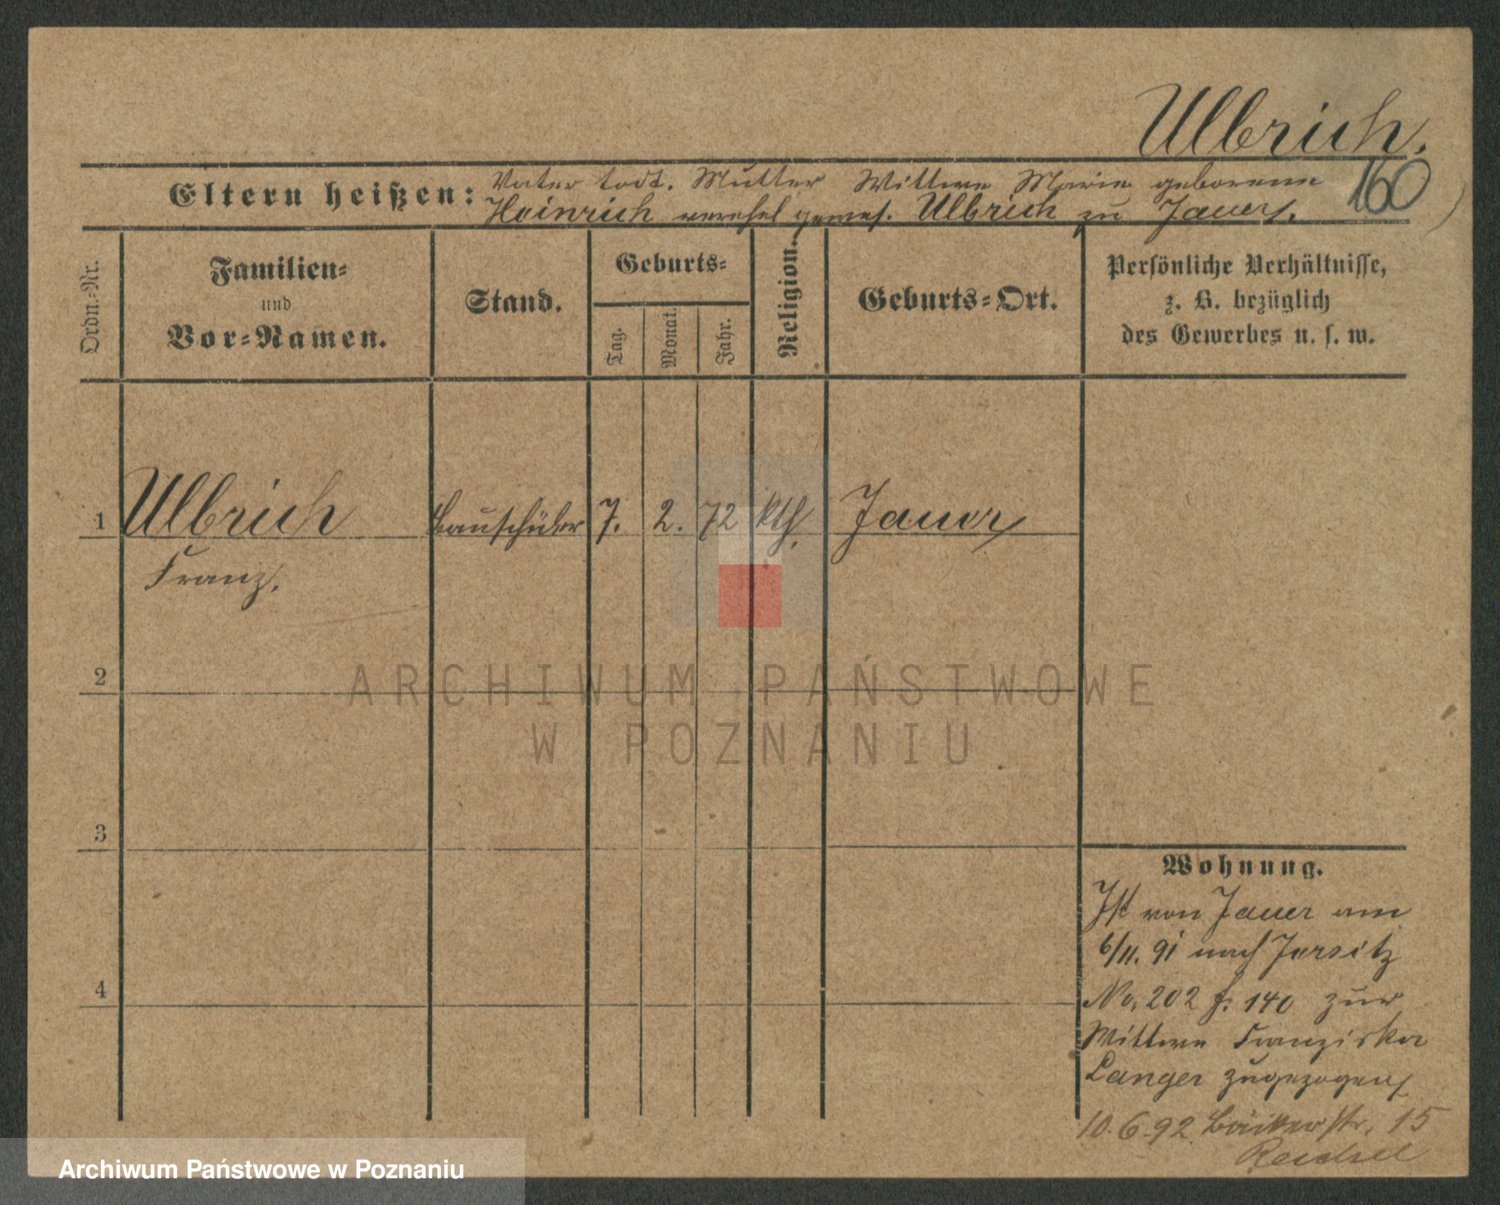 Ulbrich.
Eltern heißen: Vater todt. Mutter Wittwe Marie geborene 160
Heinrich verehel gewes. Ulbrich zu Jauer.
Ordn.-Nr.
Familien-
und
Vor-Namen.
Stand.
Geburts-
Tag.
Monat.
Jahr.
Religion.
Geburts-Ort.
Persönliche Verhältnisse,
z. B. bezüglich
des Gewerbes u. s. w.
1 Ulbrich Bauschüler 7. 2. 72 kth. Jauer
Franz.
2
ARCHIWUM PAŃSTWOWE
W POZNANIU
3
Wohnung.
Ist von Jauer am
6/11. 91 nach Jersitz
No. 202 f. 140 zur
4
Wittwe Franziska
Langer zugezogen
10.6.92 Bäckerstr. 15
Archiwum Państwowe w Poznaniu